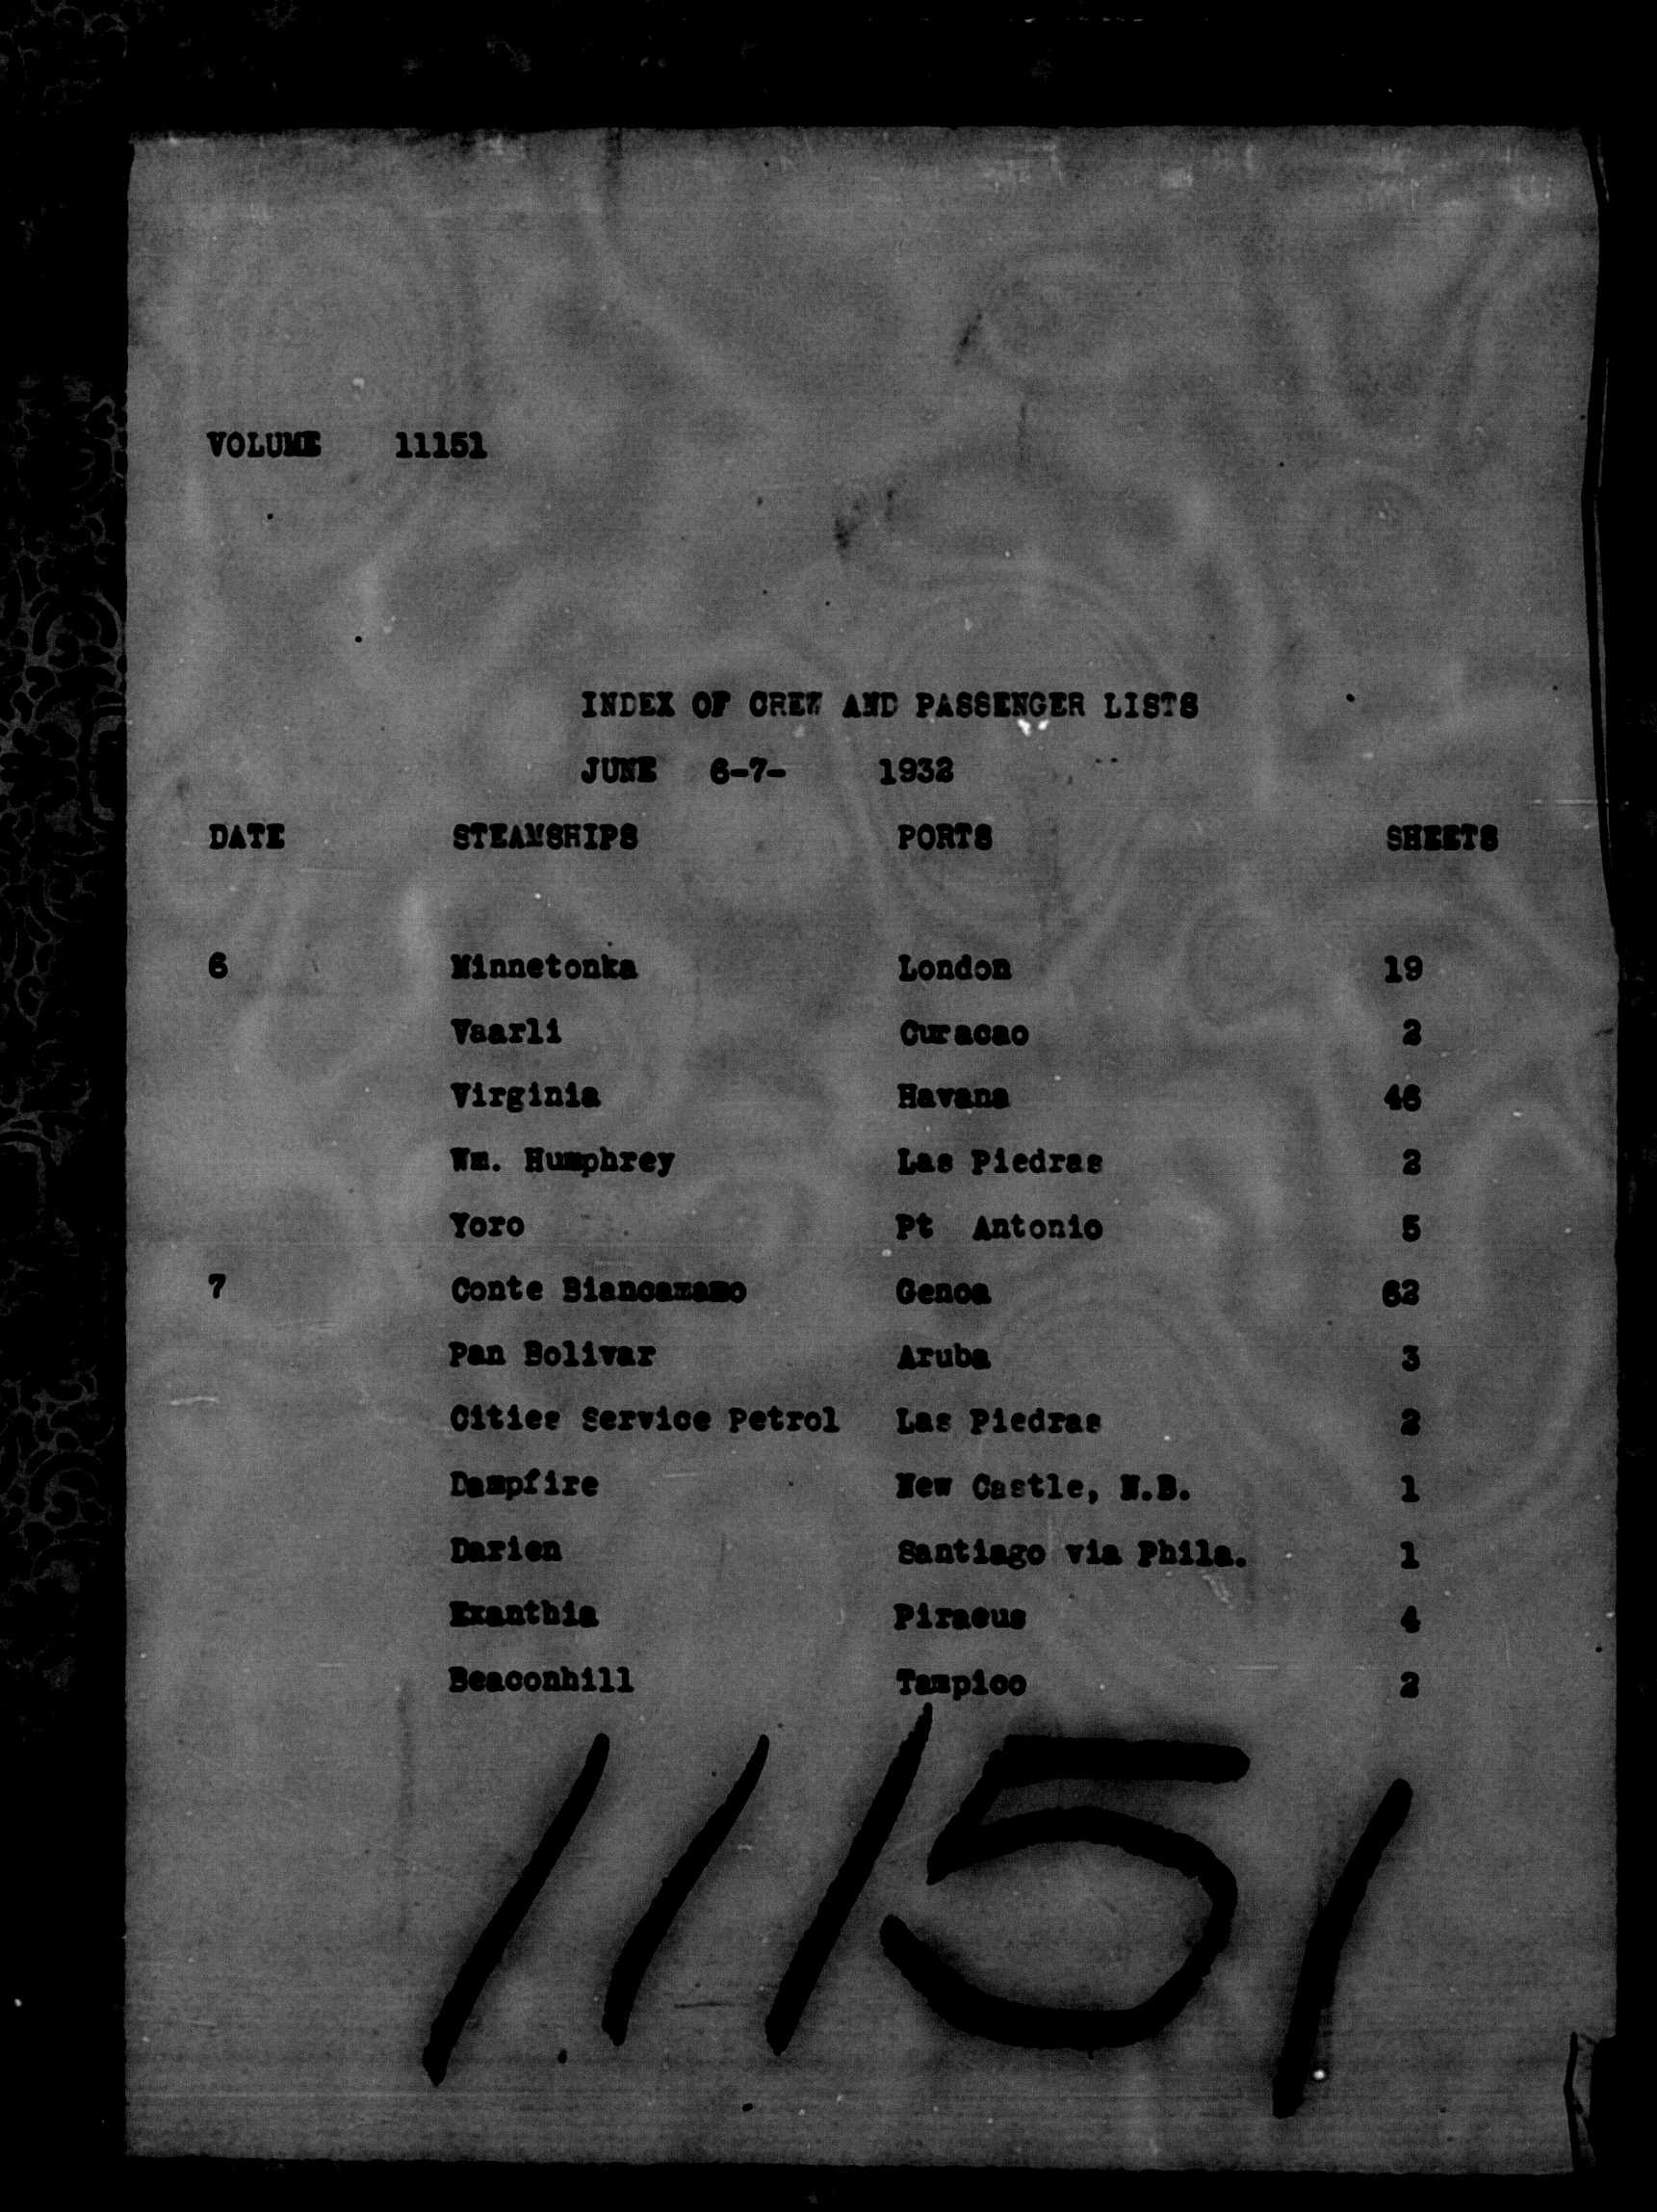 VOLUME 11151
INDEX OF CREW AND PASSENGER LISTS
JUNE 6-7- 1932
DATE STEAMSHIPS PORTS SHEETS
6 Minnetonka London 19
Vaarli Curacao 2
Virginia Havana 46
Wm. Humphrey Las Piedras 2
Yoro Pt Antonio 5
7 Conte Biancamano Genoa 62
Pan Bolivar Aruba 3
Cities Service Petrol Las Piedras 2
Dampfire New Castle, N.B. 1
Darien Santiago via Phila. 1
Exanthia Piraeus 4
Beaconhill Tampico 2
11151